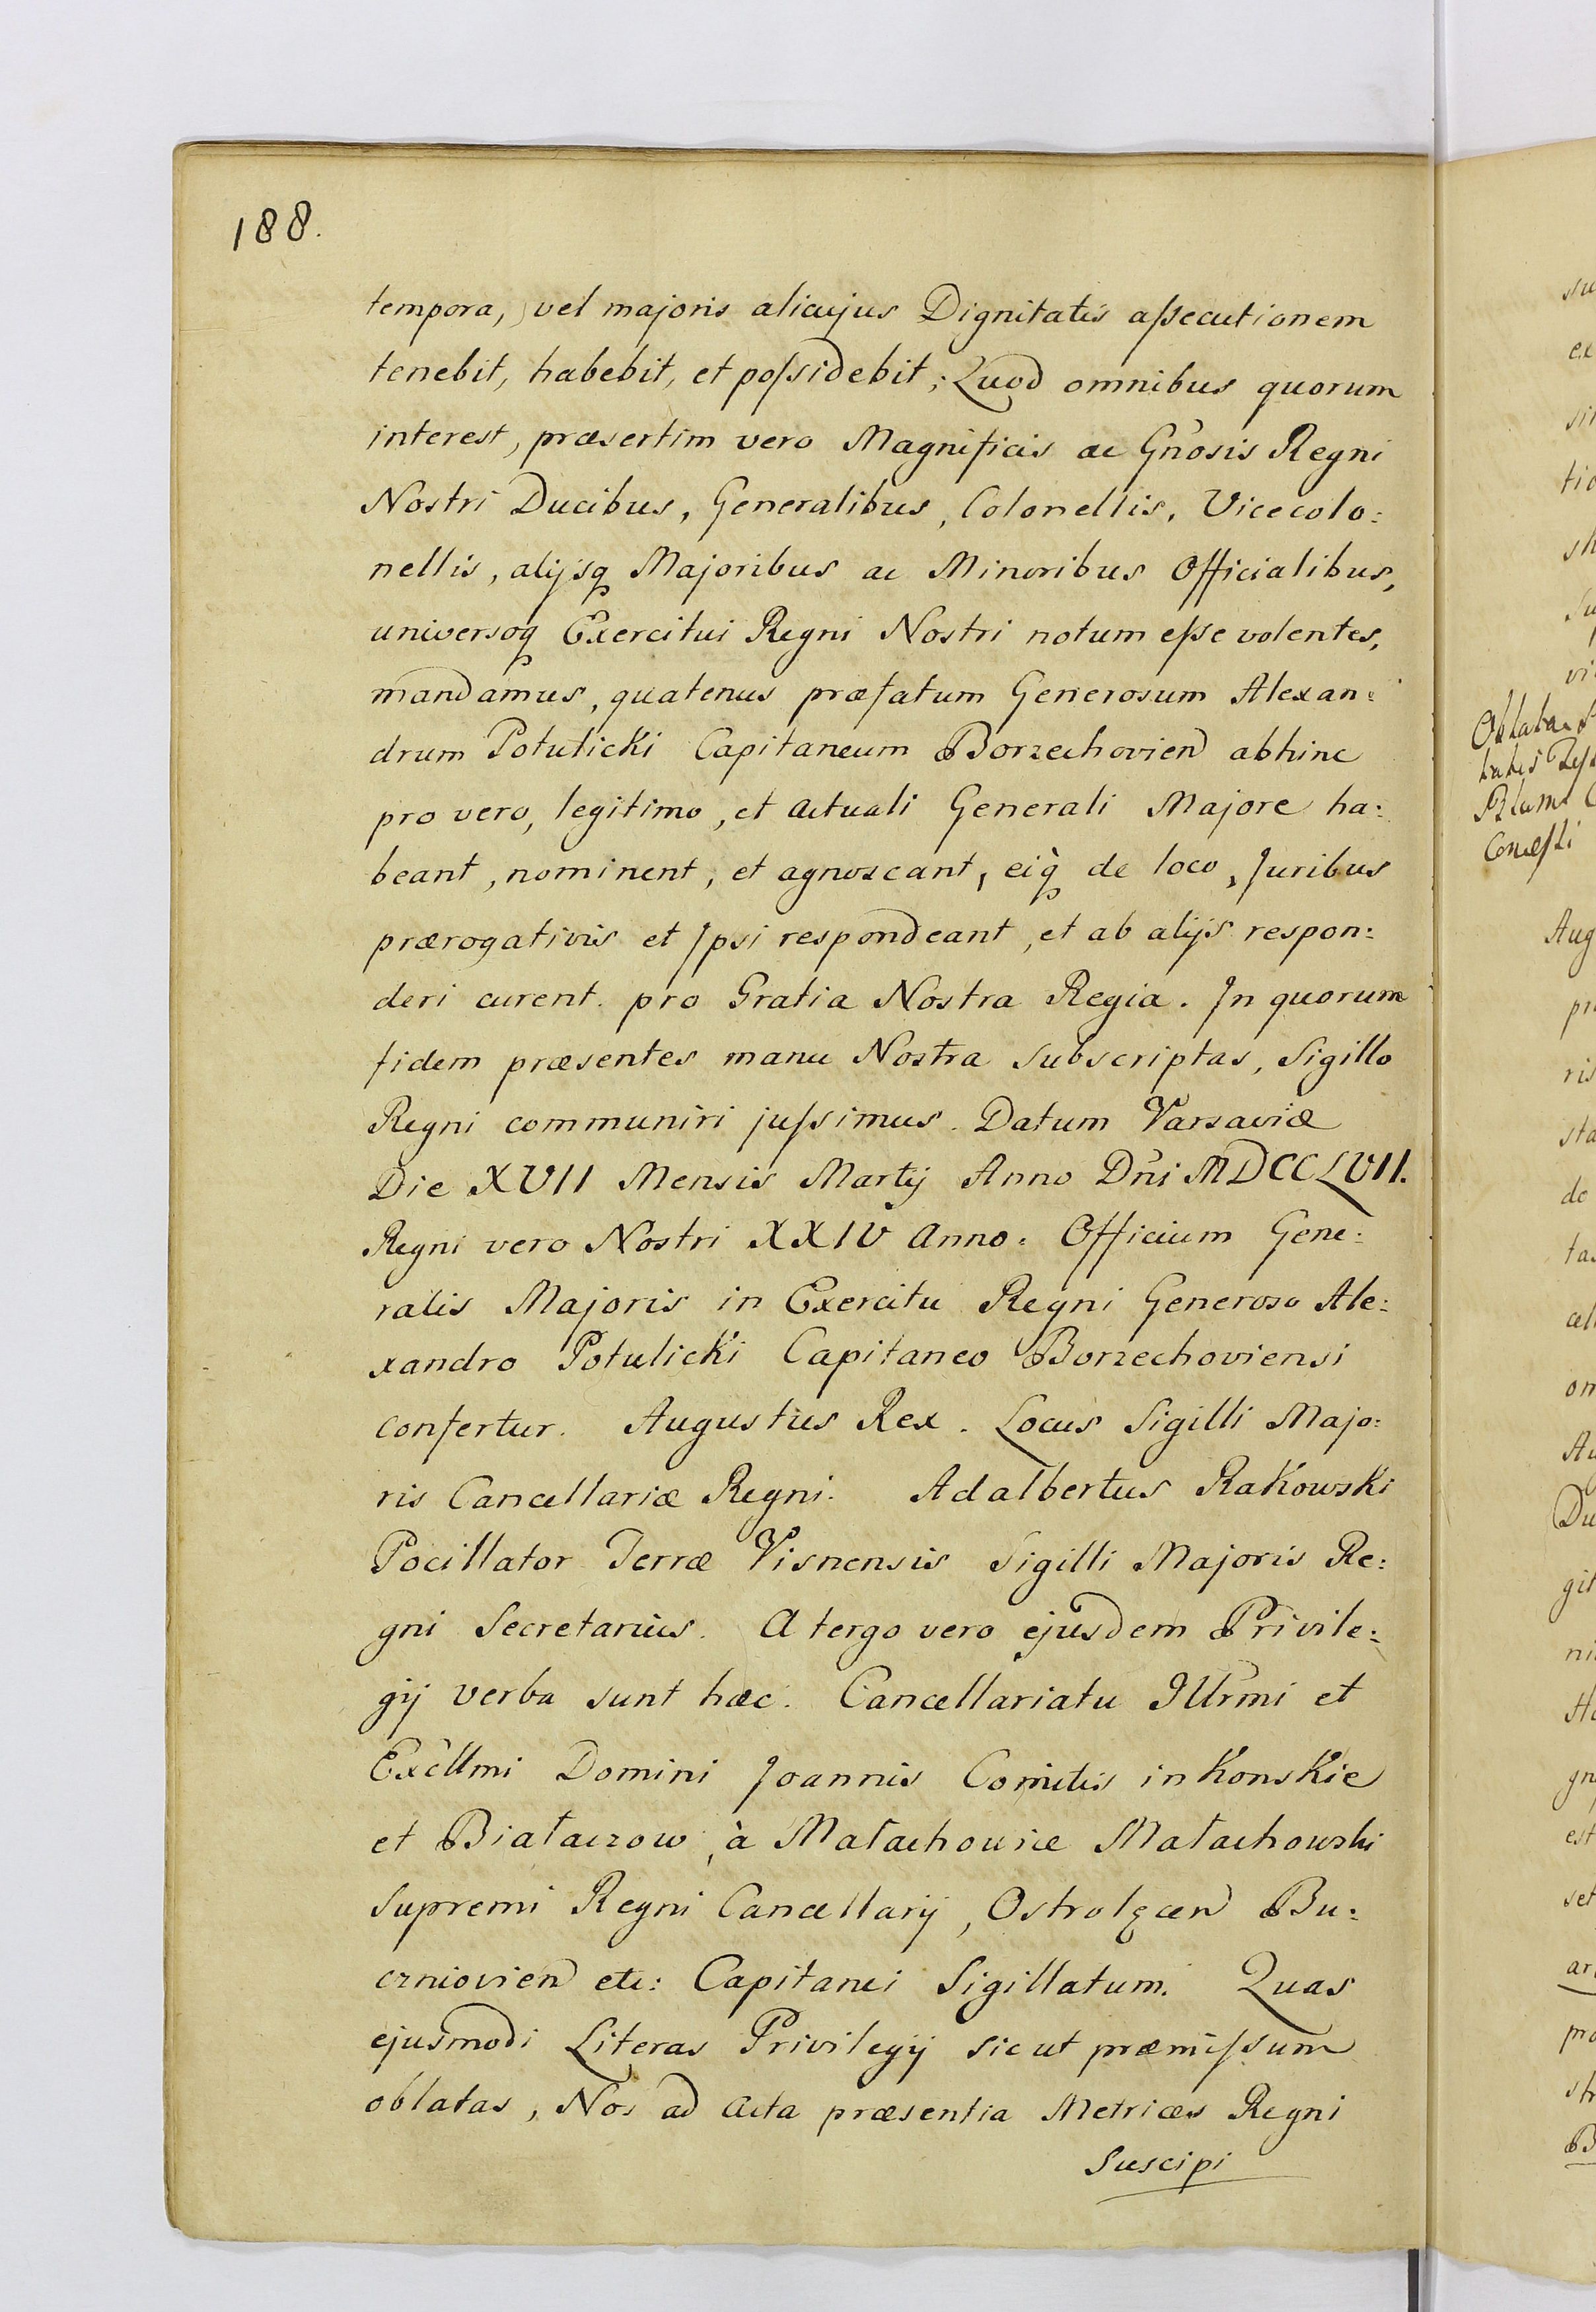 188.
tempora, vel majoris alicujus Dignitatis aſsecutionem
tenebit, habebit, et poſsidebit; Quod omnibus quorum
interest, præsertim vero Magnificis ac Gnosis Regni
Nostri Ducibus, Generalibus, Colonellis, Vicecolo:
nellis, alijsq Majoribus ac Minoribus Officialibus,
universoq Exercitui Regni Nostri notum eſse volentes,
mandamus, quatenus præfatum Generosum Alexan:
drum Potulicki Capitaneum Borzechovien abhinc
pro vero, legitimo, et actuali Generali Majore ha:
beant, nominent, et agnoscant, eiq̀ de loco, Juribus
prærogativis et Ipsi respondeant, et ab alijs respon:
deri curent. pro Gratia Nostra Regia. In quorum
fidem præsentes manu Nostra subscriptas, Sigillo
Regni communiri juſsimus. Datum Varsaviæ
Die XVII Mensis Martij Anno Dñi MDCCLVII.
Regni vero Nostri XXIV Anno. Officium Gene:
ralis Majoris in Exercitu Regni Generoso Ale:
xandro Potulicki Capitaneo Borzechoviensi
confertur. Augustus Rex. Locus Sigilli Majo:
ris Cancellariæ Regni. Adalbertus Rakowski
Pocillator Terræ Visnensis Sigilli Majoris Re:
gni Secretarius. A tergo vero ejusdem Privile:
gij verba sunt hæc. Cancellariatu Illrmi et
Excllmi Domini Joannis Comitis in Konskie
et Białaczow, à Małachowice Małachowski
Supremi Regni Cancellarij, Ostrolęcen Bu:
czniovien etc: Capitanei Sigillatum. Quas
ejusmodi Literas Privilegij sicut præmiſsum
oblatas, Nos ad Acta præsentia Metrices Regni
Suscipi